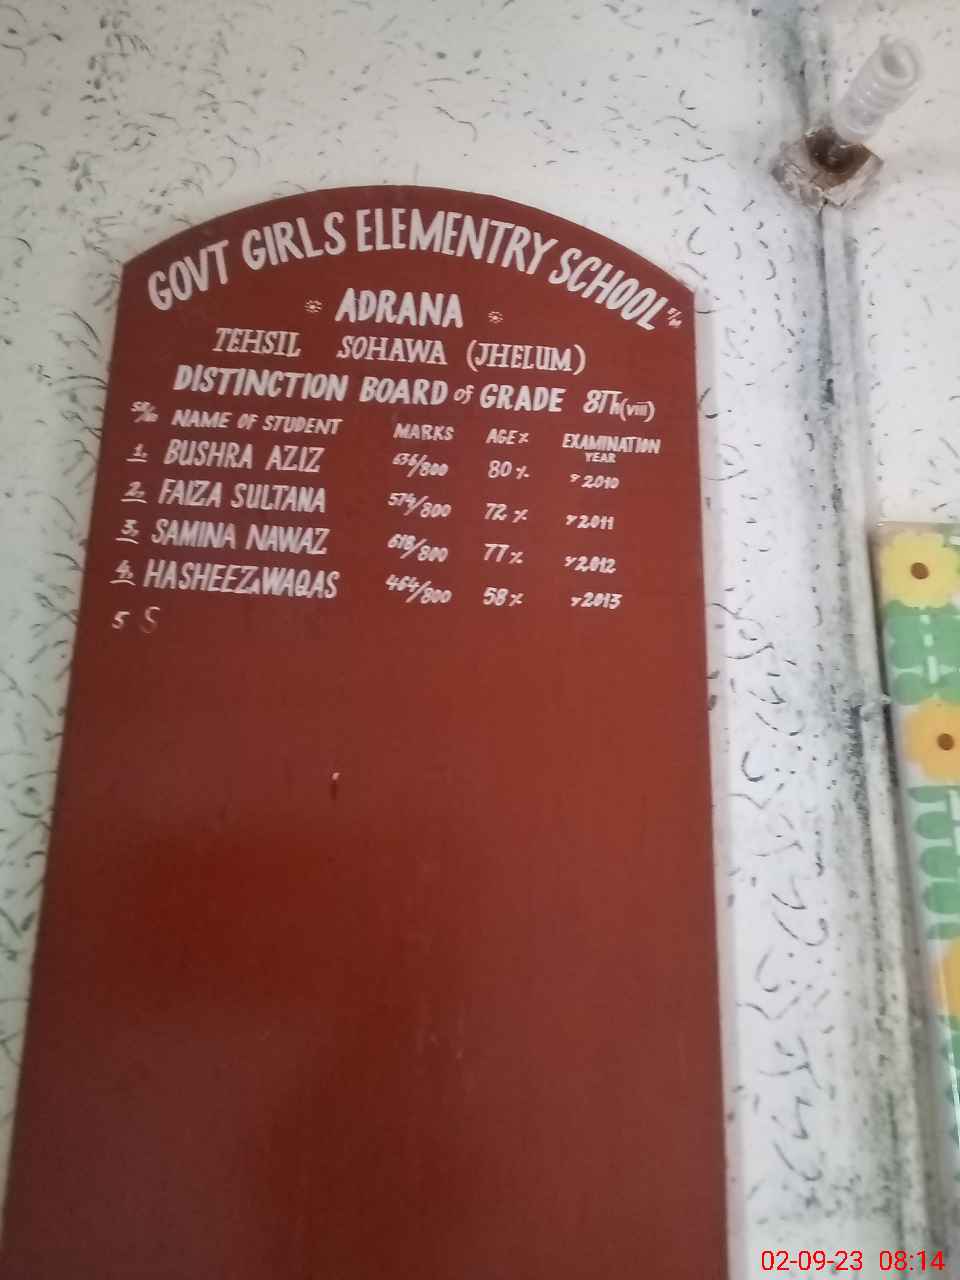 GOVT GIRLS ELEMENTRY SCHOOL
ADRANA
TEHSIL SOHAWA (JHELUM)
DISTINCTION BOARD of GRADE 8Th(viii)
SR/NO NAME OF STUDENT MARKS AGE% EXAMINATION YEAR
1, BUSHRA AZIZ 636/800 80% 2010
2, FAIZA SULTANA 574/800 72% 2011
3, SAMINA NAWAZ 618/800 77% 2012
4, HASHEEZA WAQAS 464/800 58% 2013
5 S
02-09-23 08:14